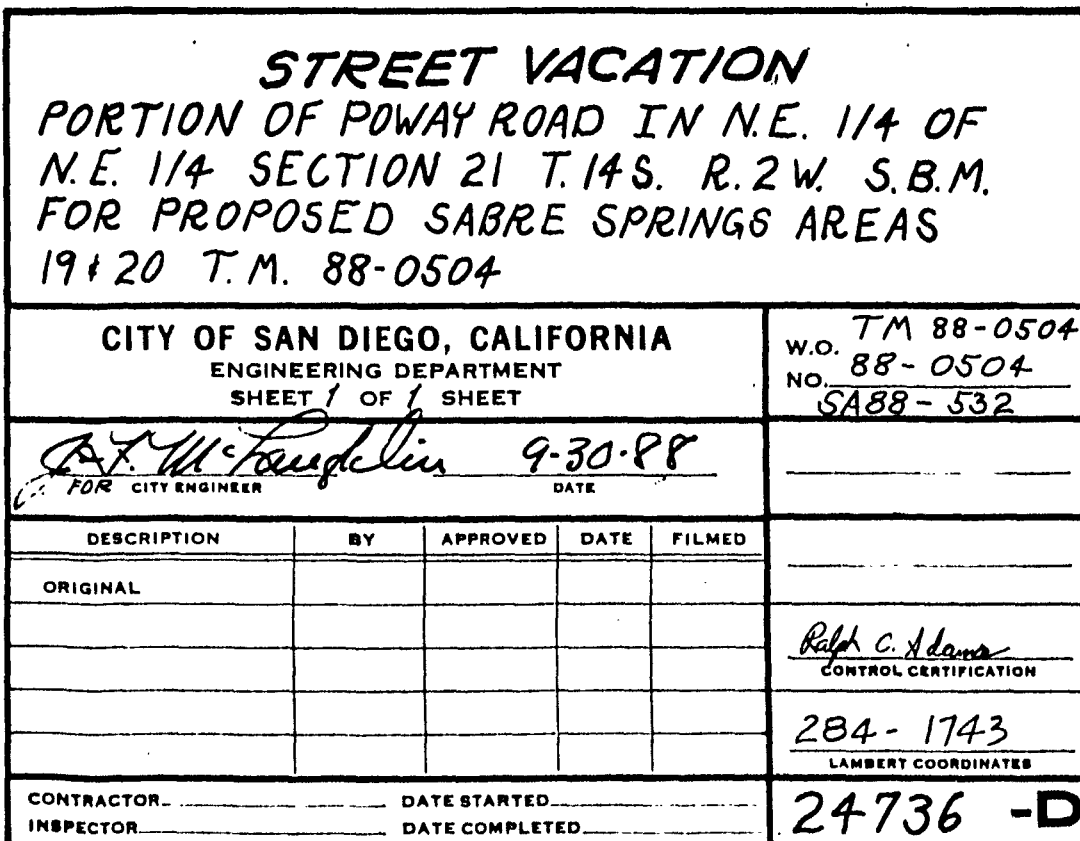 STREET VACATION
PORTION OF POWAY ROAD IN N.E. 1/4 OF
N.E. 1/4 SECTION 21 T.14S. R.2W. S.B.M.
FOR PROPOSED SABRE SPRINGS AREAS
19 & 20 T.M. 88-0504
CITY OF SAN DIEGO, CALIFORNIA
ENGINEERING DEPARTMENT
SHEET 1 OF 1 SHEET
W.O. TM 88-0504
NO. 88-0504
SA88-532
McLaughlin 9-30-88
FOR CITY ENGINEER DATE
DESCRIPTION BY APPROVED DATE FILMED
ORIGINAL
Ralph C. Adams
CONTROL CERTIFICATION
284-1743
LAMBERT COORDINATES
CONTRACTOR DATE STARTED
INSPECTOR DATE COMPLETED
24736 -D